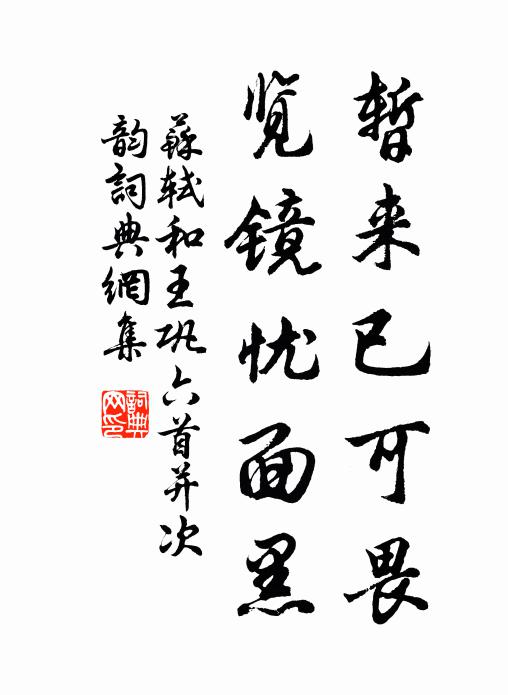 暂来已可畏
览镜忧面黑
蘇軾和王巩六首并次
韵詞典網集
詞典
网印